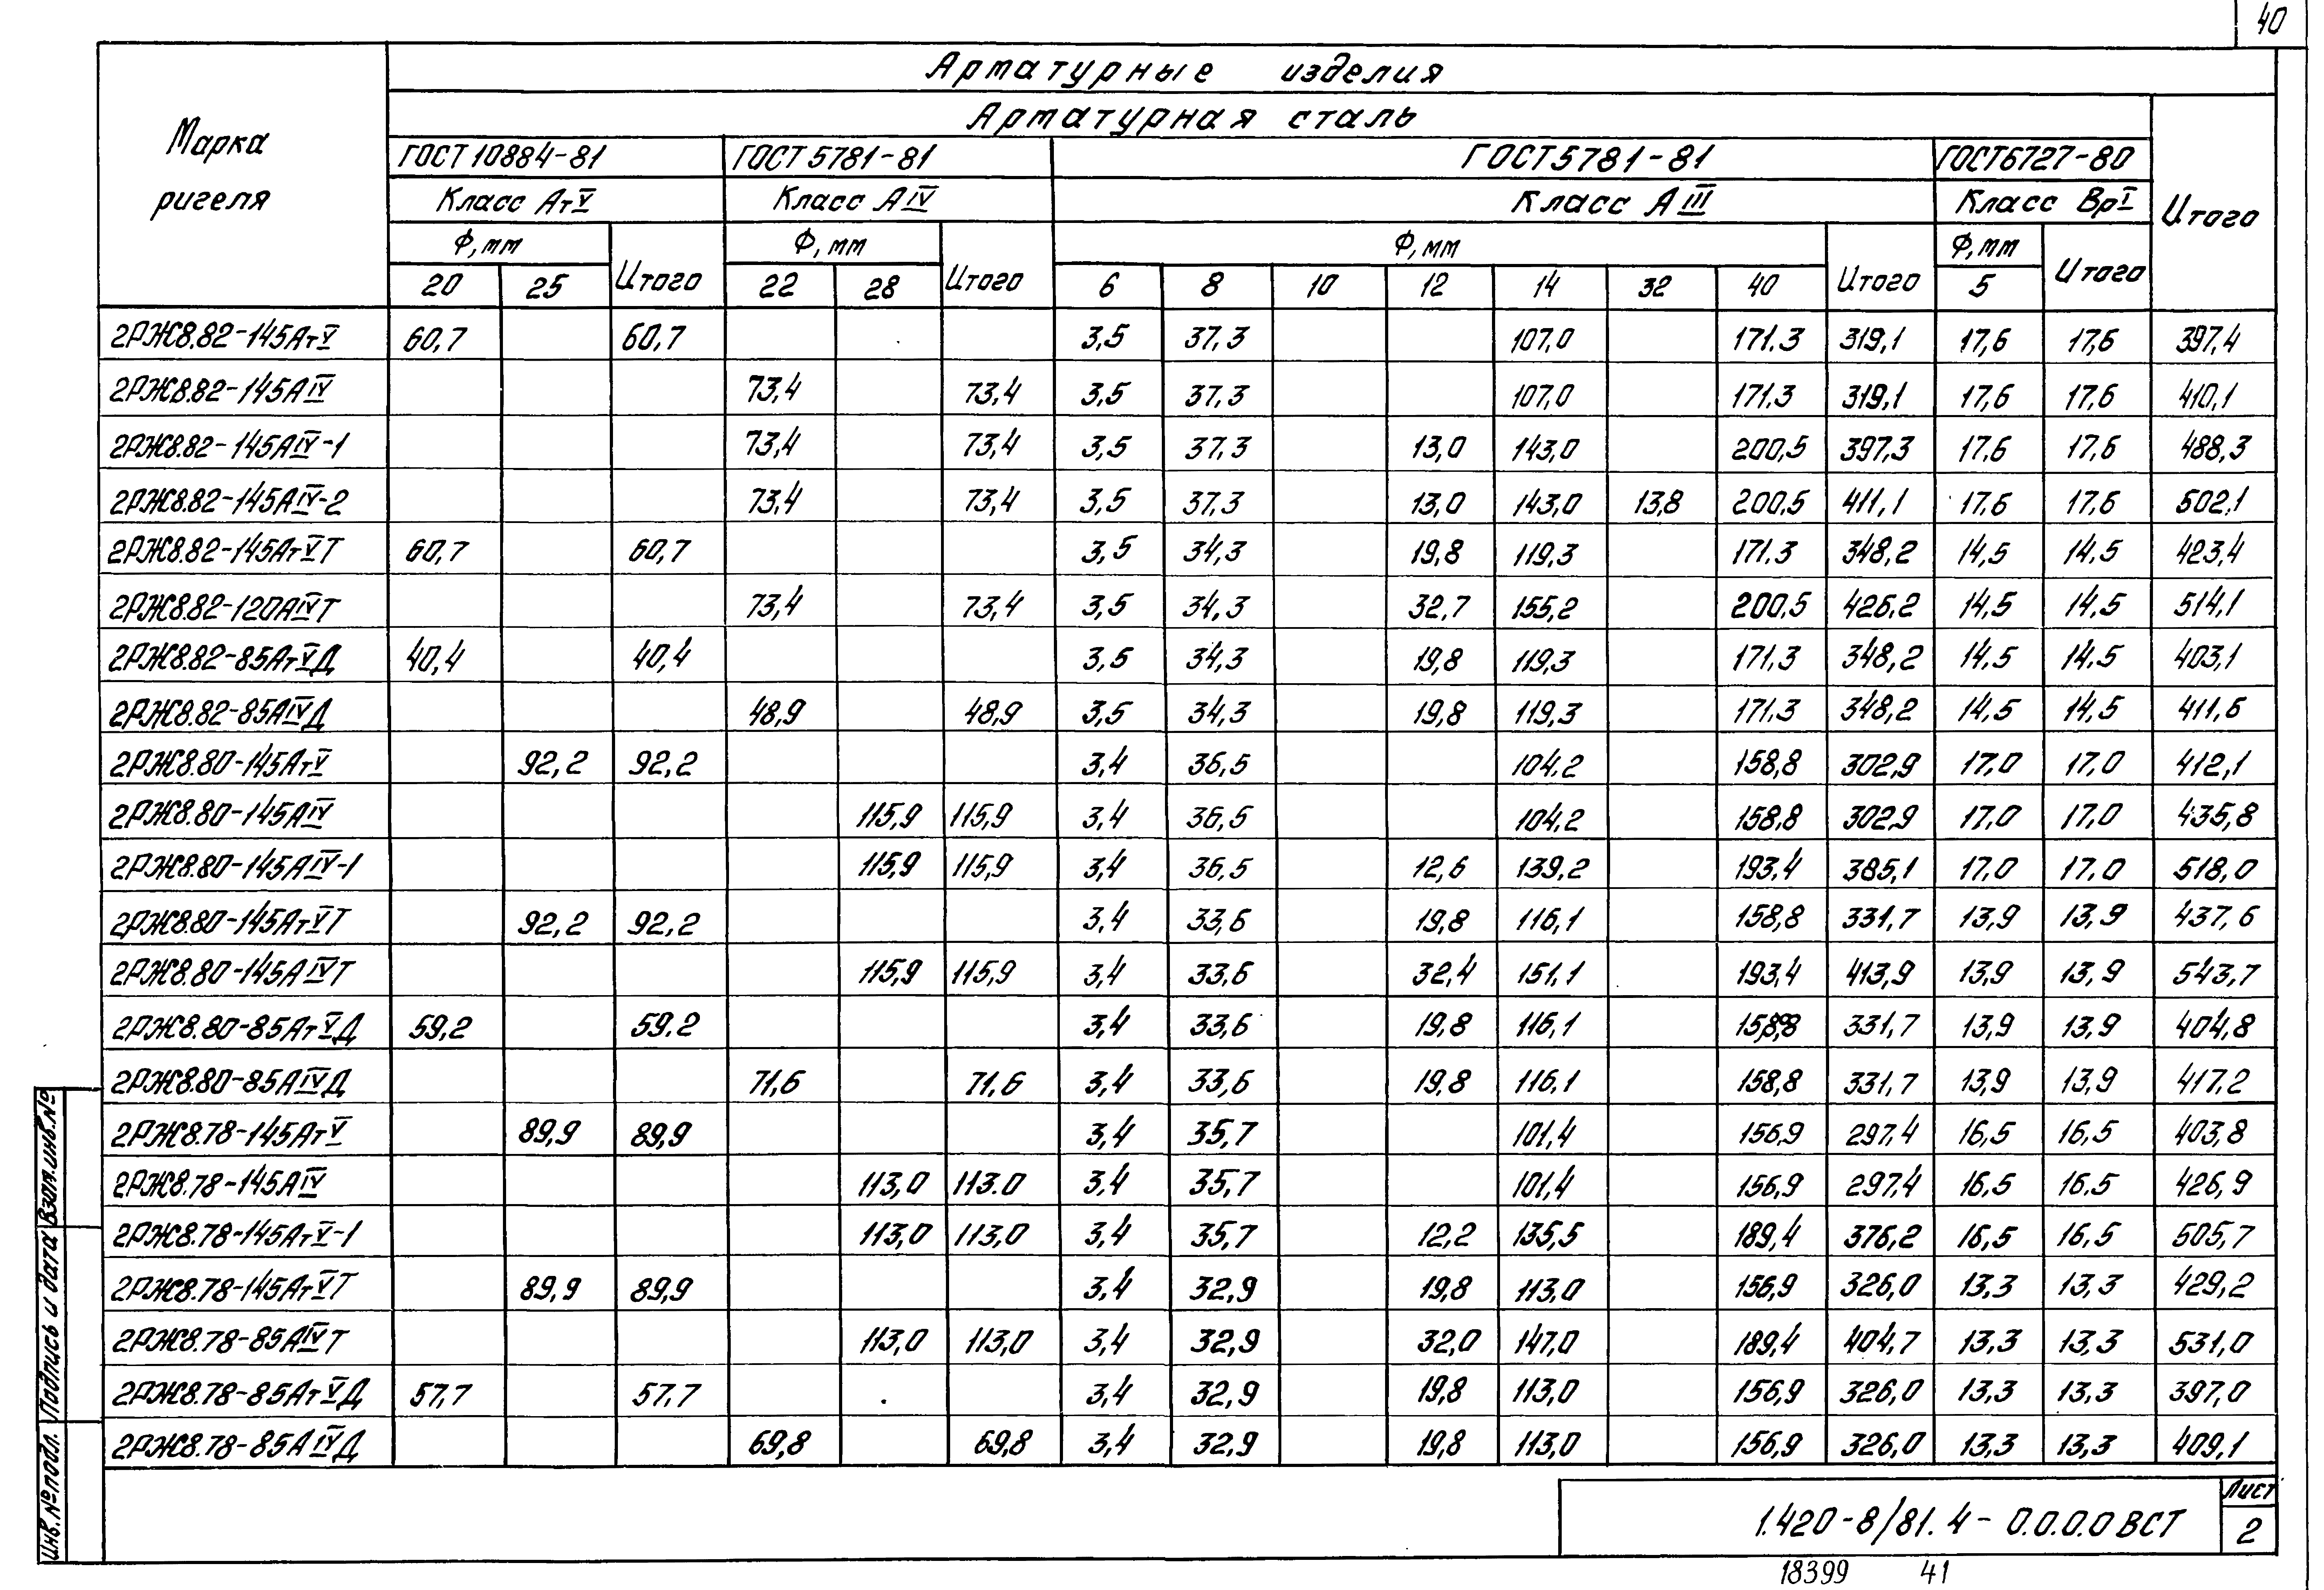 40
Арматурные изделия
Арматурная сталь
Марка ригеля
ГОСТ 10884-81 ГОСТ 5781-81 ГОСТ 5781-81 ГОСТ 6727-80
Класс АтV Класс АIV Класс АIII Класс ВрI Итого
Ф, мм Итого Ф, мм Итого Ф, мм Итого Ф, мм Итого
20 25 22 28 6 8 10 12 14 32 40 5
2РЖ8.82-145АтV 60,7 60,7 3,5 37,3 107,0 171,3 319,1 17,6 17,6 397,4
2РЖ8.82-145АIV 73,4 73,4 3,5 37,3 107,0 171,3 319,1 17,6 17,6 410,1
2РЖ8.82-145АIV-1 73,4 73,4 3,5 37,3 13,0 143,0 200,5 397,3 17,6 17,6 488,3
2РЖ8.82-145АIV-2 73,4 73,4 3,5 37,3 13,0 143,0 13,8 200,5 411,1 17,6 17,6 502,1
2РЖ8.82-145АтVТ 60,7 60,7 3,5 34,3 19,8 119,3 171,3 348,2 14,5 14,5 423,4
2РЖ8.82-120АIVТ 73,4 73,4 3,5 34,3 32,7 155,2 200,5 426,2 14,5 14,5 514,1
2РЖ8.82-85АтVД 40,4 40,4 3,5 34,3 19,8 119,3 171,3 348,2 14,5 14,5 403,1
2РЖ8.82-85АIVД 48,9 48,9 3,5 34,3 19,8 119,3 171,3 348,2 14,5 14,5 411,6
2РЖ8.80-145АтV 92,2 92,2 3,4 36,5 104,2 158,8 302,9 17,0 17,0 412,1
2РЖ8.80-145АIV 115,9 115,9 3,4 36,5 104,2 158,8 302,9 17,0 17,0 435,8
2РЖ8.80-145АIV-1 115,9 115,9 3,4 36,5 12,6 139,2 193,4 385,1 17,0 17,0 518,0
2РЖ8.80-145АтVТ 92,2 92,2 3,4 33,6 19,8 116,1 158,8 331,7 13,9 13,9 437,6
2РЖ8.80-145АIVТ 115,9 115,9 3,4 33,6 32,4 151,1 193,4 413,9 13,9 13,9 543,7
2РЖ8.80-85АтVД 59,2 59,2 3,4 33,6 19,8 116,1 158,8 331,7 13,9 13,9 404,8
2РЖ8.80-85АIVД 71,6 71,6 3,4 33,6 19,8 116,1 158,8 331,7 13,9 13,9 417,2
2РЖ8.78-145АтV 89,9 89,9 3,4 35,7 101,4 156,9 297,4 16,5 16,5 403,8
2РЖ8.78-145АIV 113,0 113,0 3,4 35,7 101,4 156,9 297,4 16,5 16,5 426,9
2РЖ8.78-145АтV-1 113,0 113,0 3,4 35,7 12,2 135,5 189,4 376,2 16,5 16,5 505,7
2РЖ8.78-145АтVТ 89,9 89,9 3,4 32,9 19,8 113,0 156,9 326,0 13,3 13,3 429,2
2РЖ8.78-85АIVТ 113,0 113,0 3,4 32,9 32,0 147,0 189,4 404,7 13,3 13,3 531,0
2РЖ8.78-85АтVД 57,7 57,7 3,4 32,9 19,8 113,0 156,9 326,0 13,3 13,3 397,0
2РЖ8.78-85АIVД 69,8 69,8 3,4 32,9 19,8 113,0 156,9 326,0 13,3 13,3 409,1
Инв.№ подл. Подпись и дата Взам.инв.№
1.420-8/81.4-0.0.0.0 ВСТ
Лист
2
18399 41